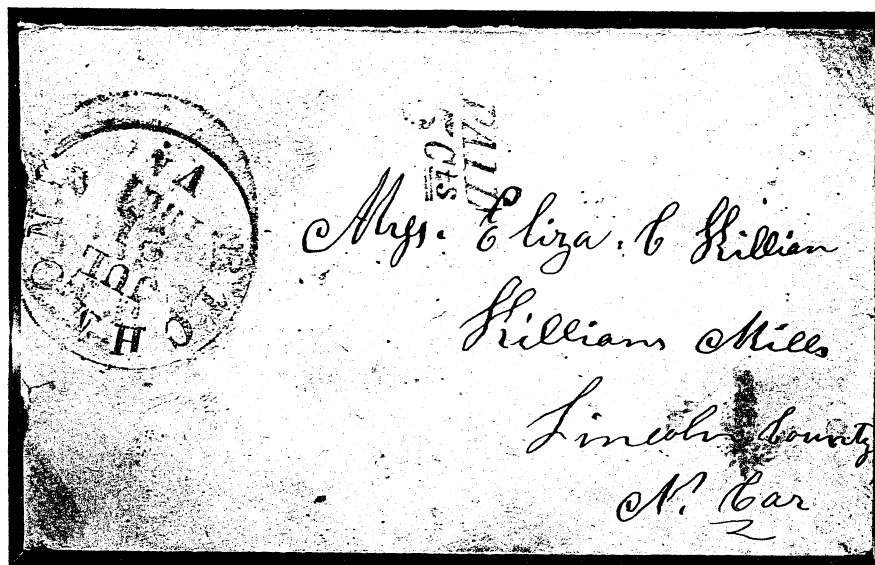 RICHMOND VA.
JUL
PAID
Cts
Mrs. Eliza. C Killian
Killians Mills
Lincoln County
N. Car